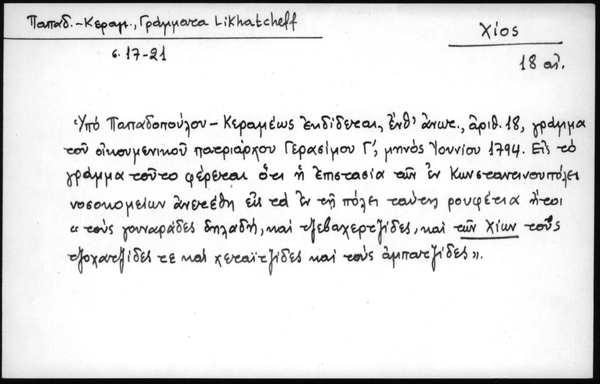 Παπαδ.-Κεραμ., Γράμματα Likhatcheff
σ. 17-21
Χίος
18 αἰ.
Ὑπό Παπαδοπούλου-Κεραμέως ἐκδίδεται, ἔνθ' ἀνωτ., ἀριθ. 18, γράμμα
τοῦ οἰκουμενικοῦ πατριάρχου Γερασίμου Γ', μηνός Ἰουνίου 1794. Εἰς τό
γράμμα τοῦτο φέρεται ὅτι ἡ ἐπιστασία τῶν ἐν Κωνσταντινουπόλει
νοσοκομείων ἀνετέθη εἰς τά ἐν τῇ πόλει ταύτῃ ρουφέτια ἤτοι
"τούς γουναράδες δηλαδή, καί τζεβαχερτζίδες, καί τῶν Χίων τούς
τζοχατζίδες τε καί χεταϊτζίδες καί τούς ἀμπατζίδες».